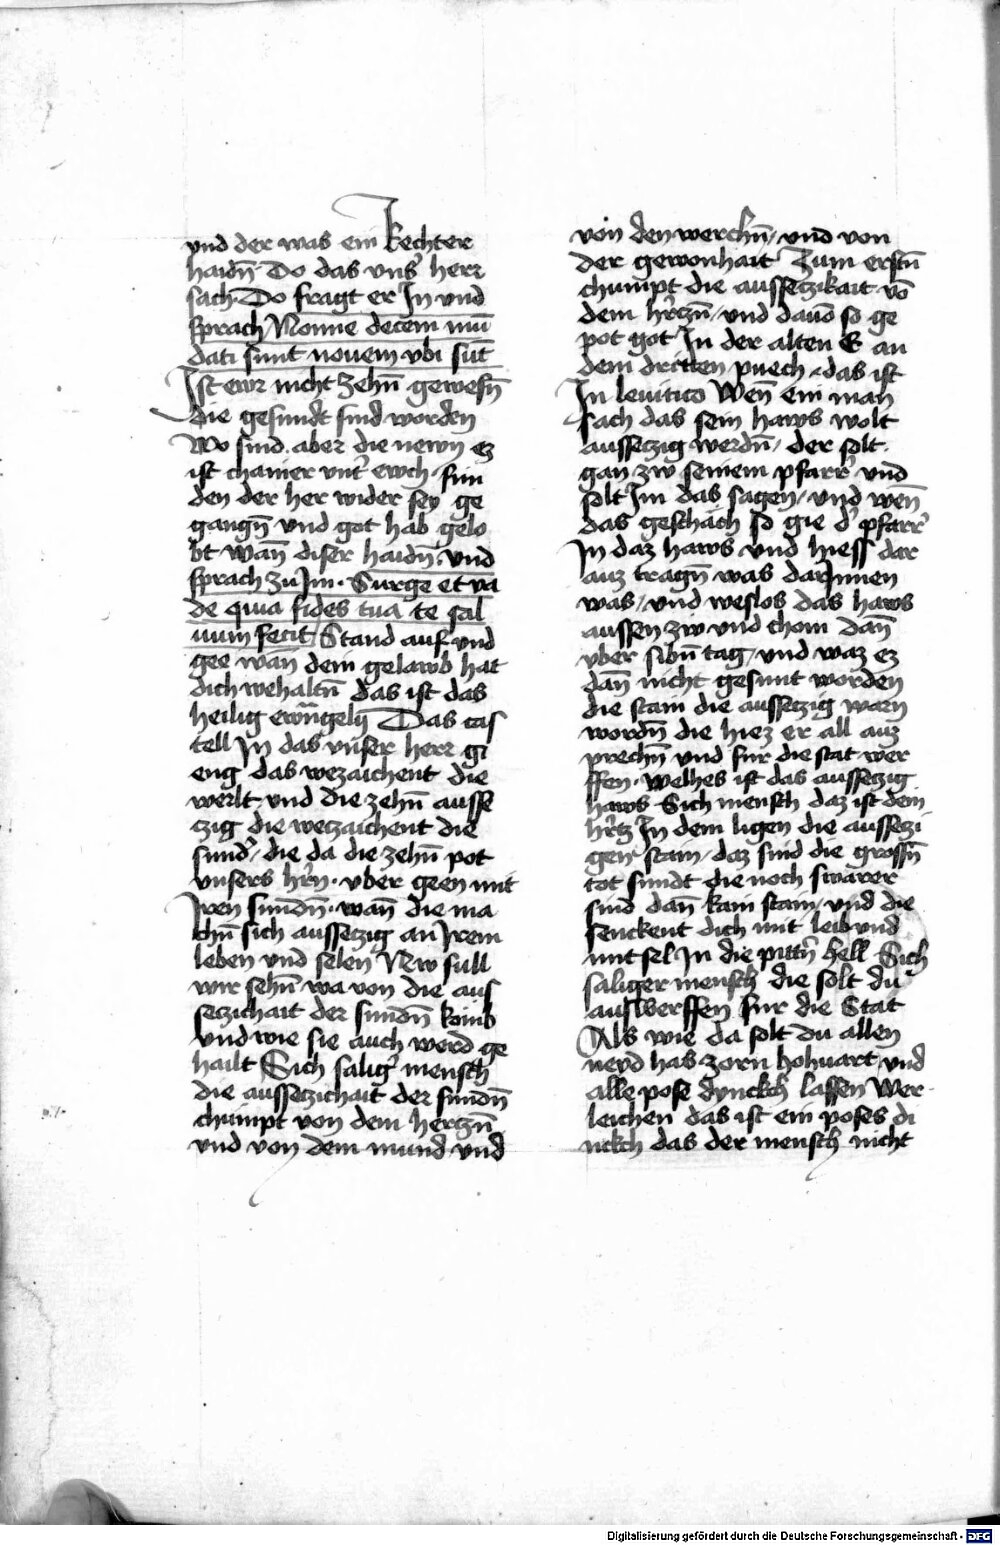 und der was ein kechter
haidn̄. Do das unsʾ herr
sach. Do fragt er In und
sprach Nonne decem mū
dati sunt novem ubi sūt
Ist ewr nicht zehn̄ gewesn̄
die gesundt sind worden
Wo sind aber die newn ez
ist chainer untʾ ewch fun
den der her wider sey ge
gangn̄ und got hab gelo
bt wan̄ diser haidn̄. und
sprach zu Im. Surge et va
de quia fides tua te sal
uum fecit Stand auf und
gee wan̄ dein gelawb hat
dich wehaltn̄ das ist das
heilig ewāngelij Das cas
tell In das unser herr gi
eng das wezaichent die
werlt und die zehn̄ ausse
czig die weczaichent die
sundʾ, die da die zehn̄ pot
unsers hʾrn. uber geen mit
Iren sundn̄. wan̄ die ma
chn̄ sich aussetzig an Irem
leben und selen New sull
wir sehn̄ wa von die aus
seczichait der sundn̄ komb
und wie sie auch werd ge
hailt Sich saligʾ mensch
die aussezichait der sundn̄
chumpt von dem herczn̄
und von dem mund und
von den werchn̄, und von
der gewonhait Zum erstn̄
chumpt die aussezikait vō
dem hʾrzn̄, und dauō so ge
pot got In der alten E an
dem dritten puech, das ist
In levitico Wen̄ ein man
sach das sein haws wolt
aussetzig werdn̄, der solt
gan zw seinem pfarrʾ und
solt Im das sagen, und wen̄
das geschach so gie dʾ pfarrʾ
In daz haws und hiess dar
auz tragn̄ was darInnen
was, und weslos das haws
aussen zw und chom dan̄
uber sibn̄ tag, und waz ez
dan̄ nicht gesunt worden
die stain die aussetzig warn
wordn̄ die hiez er all auz
prechn̄ und fur die stat wer
ffen. welhes ist das aussetzig
haws Sich mensch daz ist dein
hʾrtz In dem ligen die aussetzi
gen stain, daz sind die grossn̄
tot sundt die noch swarer
sind dan̄ kain stain, und die
senckent dich mit leib und
mit sel In die pittʾn hell Sich
saliger mensch die solt du
auswerffen fur die Stat
Als wie da solt du allen
neyd has zorn hohuart und
alle pose dynckch lassen Wer
leichen das ist ein poses di
nckch das der mensch nicht
Digitalisierung gefördert durch die Deutsche Forschungsgemeinschaft - DFG